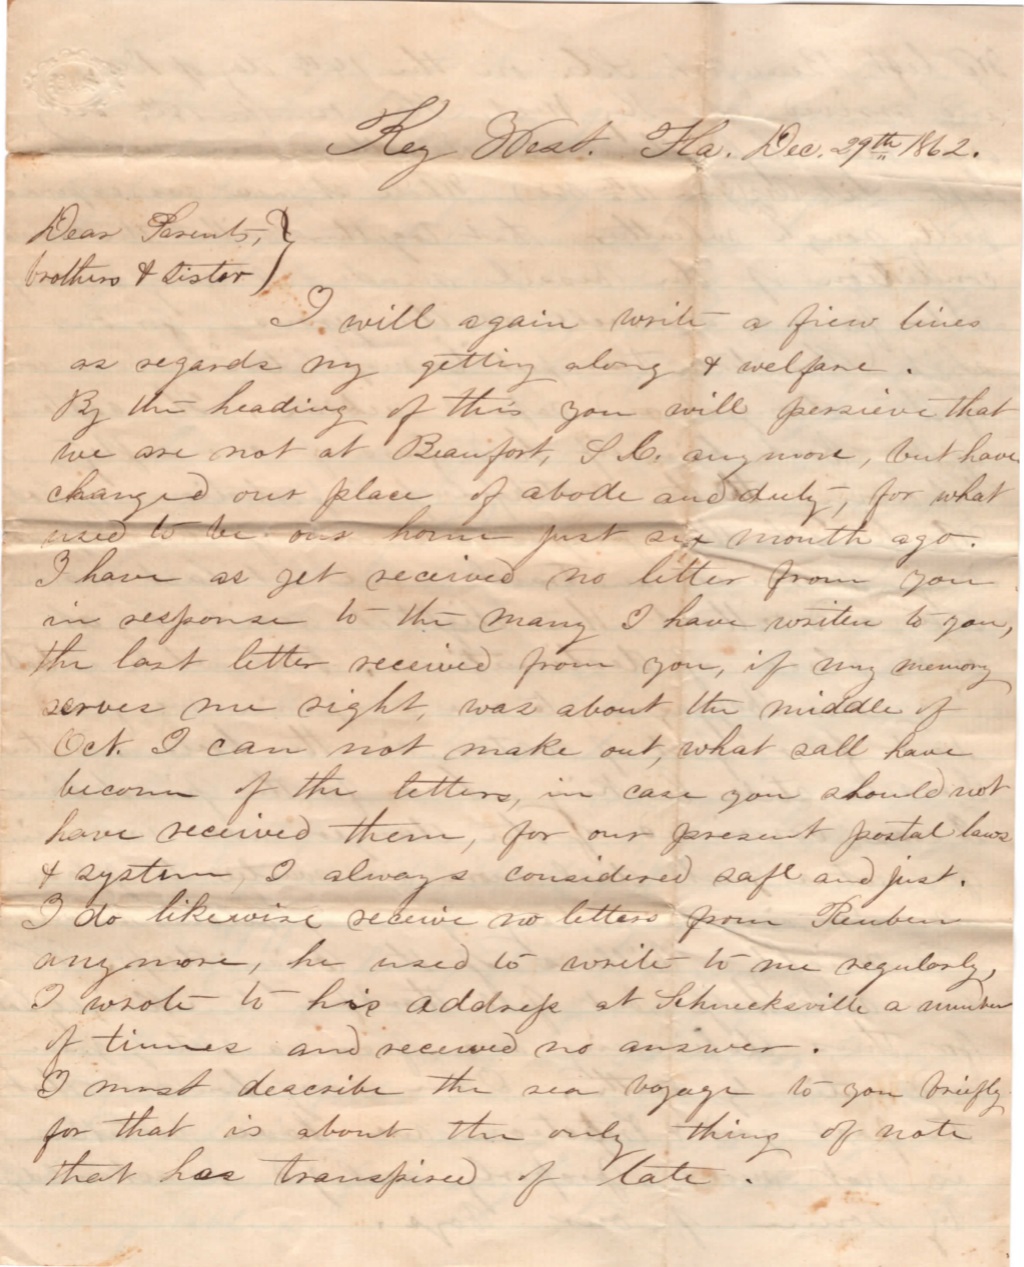 Key West. Fla. Dec. 29th 1862.
Dear Parents,
brothers & sister
I will again write a fiew lines
as regards my getting along & welfare.
By the heading of this you will persieve that
we are not at Beaufort, S.C. anymore, but have
changed our place of abode and duty, for what
used to be our home just six month ago.
I have as yet received no letter from you
in response to the many I have writen to you,
the last letter received from you, if my memory
serves me right, was about the middle of
Oct. I can not make out, what sall have
becom of the letters, in case you should not
have received them, for our present postal laws
& system, I always considered safe and just.
I do likewise receive no letters from Reuben
anymore, he used to write to me regularly,
I wrote to his address at Schnecksville a number
of times and received no answer.
I must describe the sea voyage to you briefly
for that is about the only thing of note
that has transpired of late.